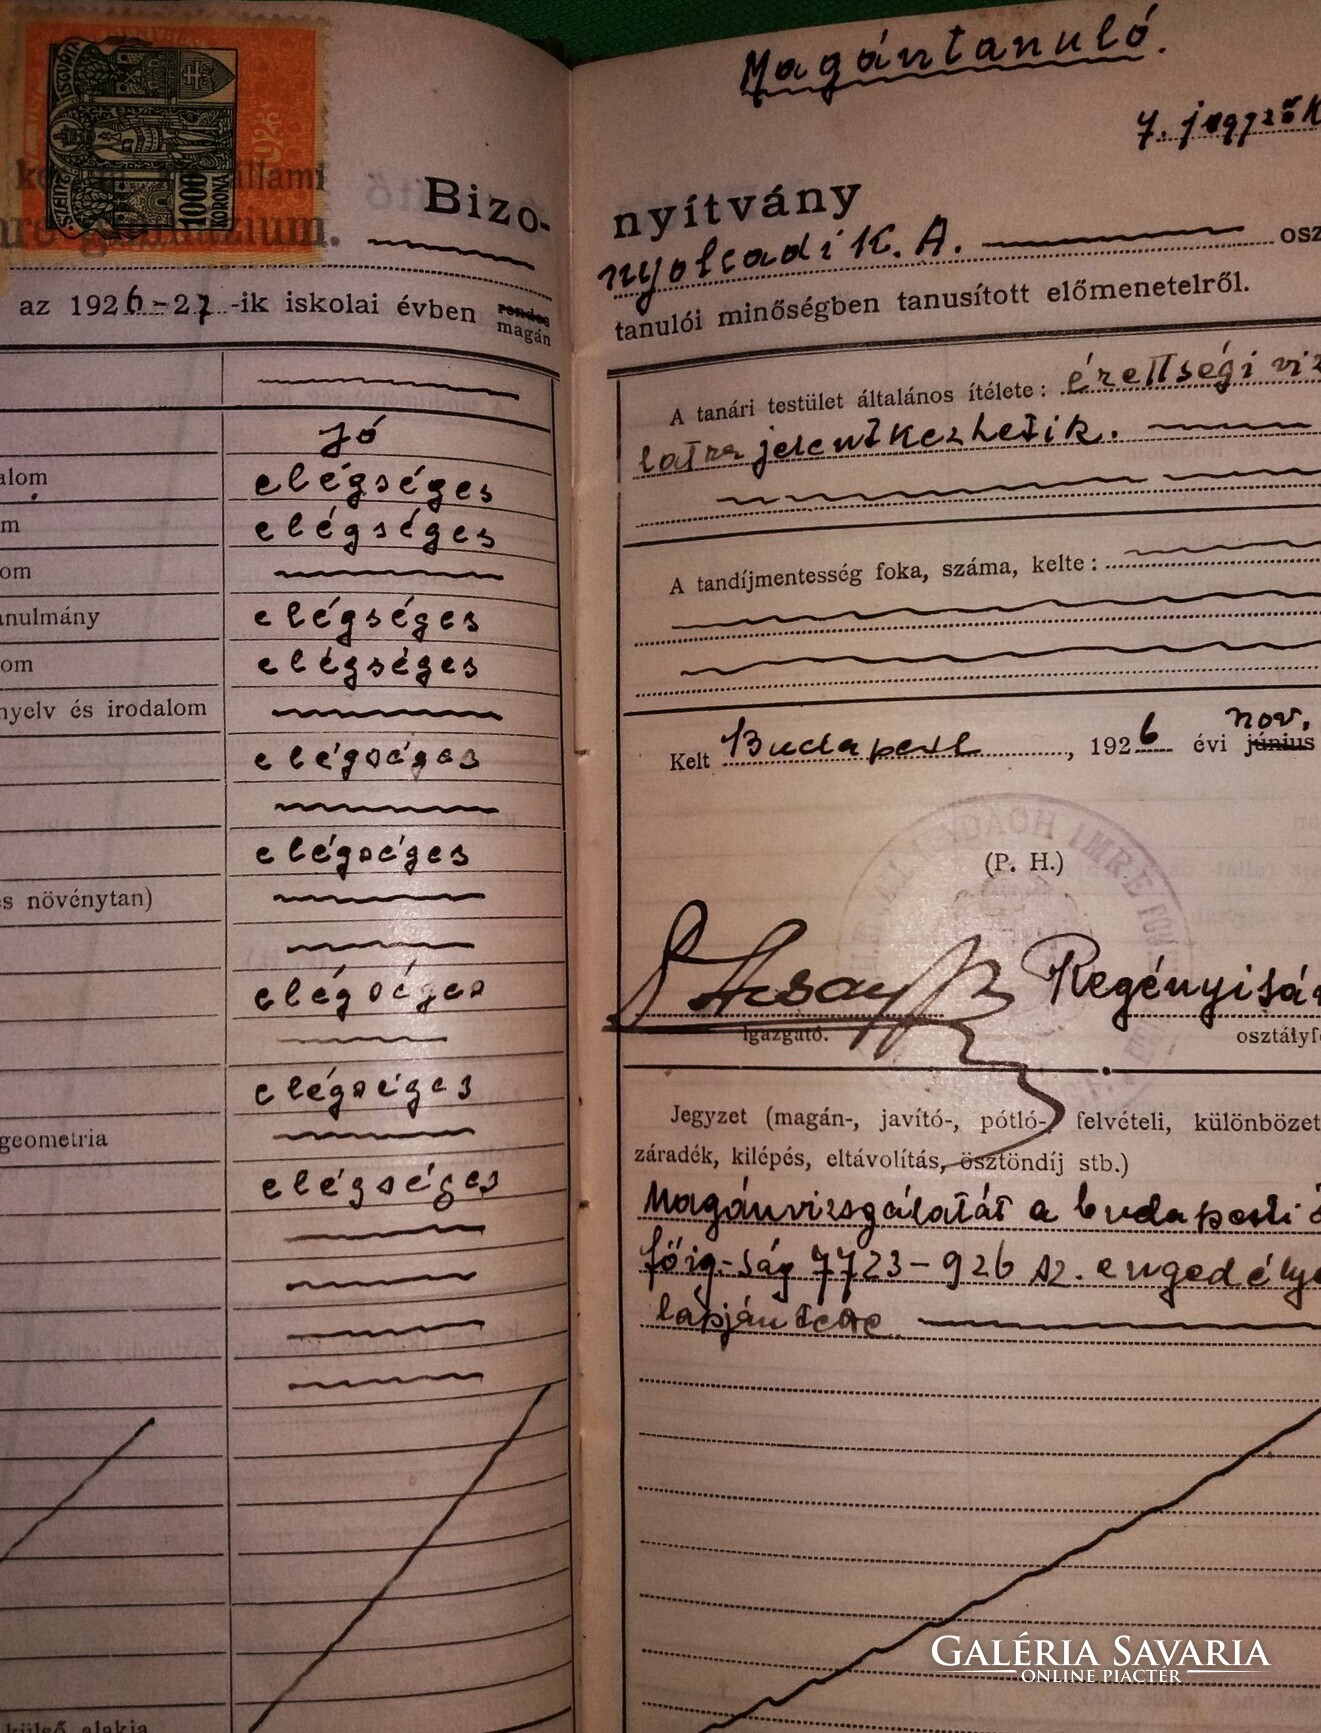 SZENT
ISGVRIT
1000
KORONA
állami
gimnázium.
Bizo-
az 1926-27-ik iskolai évben rendes
magán
jó
alom elégséges
m elégséges
om
anulmány elégséges
om elégséges
nyelv és irodalom
elégséges
elégséges
és növénytan)
elégséges
elégséges
geometria
elégséges
külső alakja
Magántanuló.
7. jegyzők
nyítvány
nyolcadik K. A. osz
tanulói minőségben tanusított előmenetelről.
A tanári testület általános ítélete: érettségi viz
latra jelentkezhetik.
A tandíjmentesség foka, száma, kelte:
Kelt Budapest, 1926 évi június
nov.
MADÁCH IMRE
(P. H.)
igazgató.
osztályf
Jegyzet (magán-, javító-, pótló-, felvételi, különbözet
záradék, kilépés, eltávolítás, ösztöndíj stb.)
Magánvizsgálatát a budapesti
főig.-ság 7723-926 sz. engedélye
lapján tette.
GALÉRIA SAVARIA
ONLINE PIACTÉR